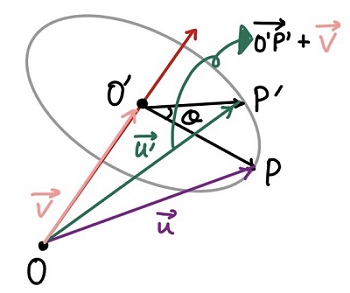 O'P' + V
O'
P'
θ
u'
P
V
u
O